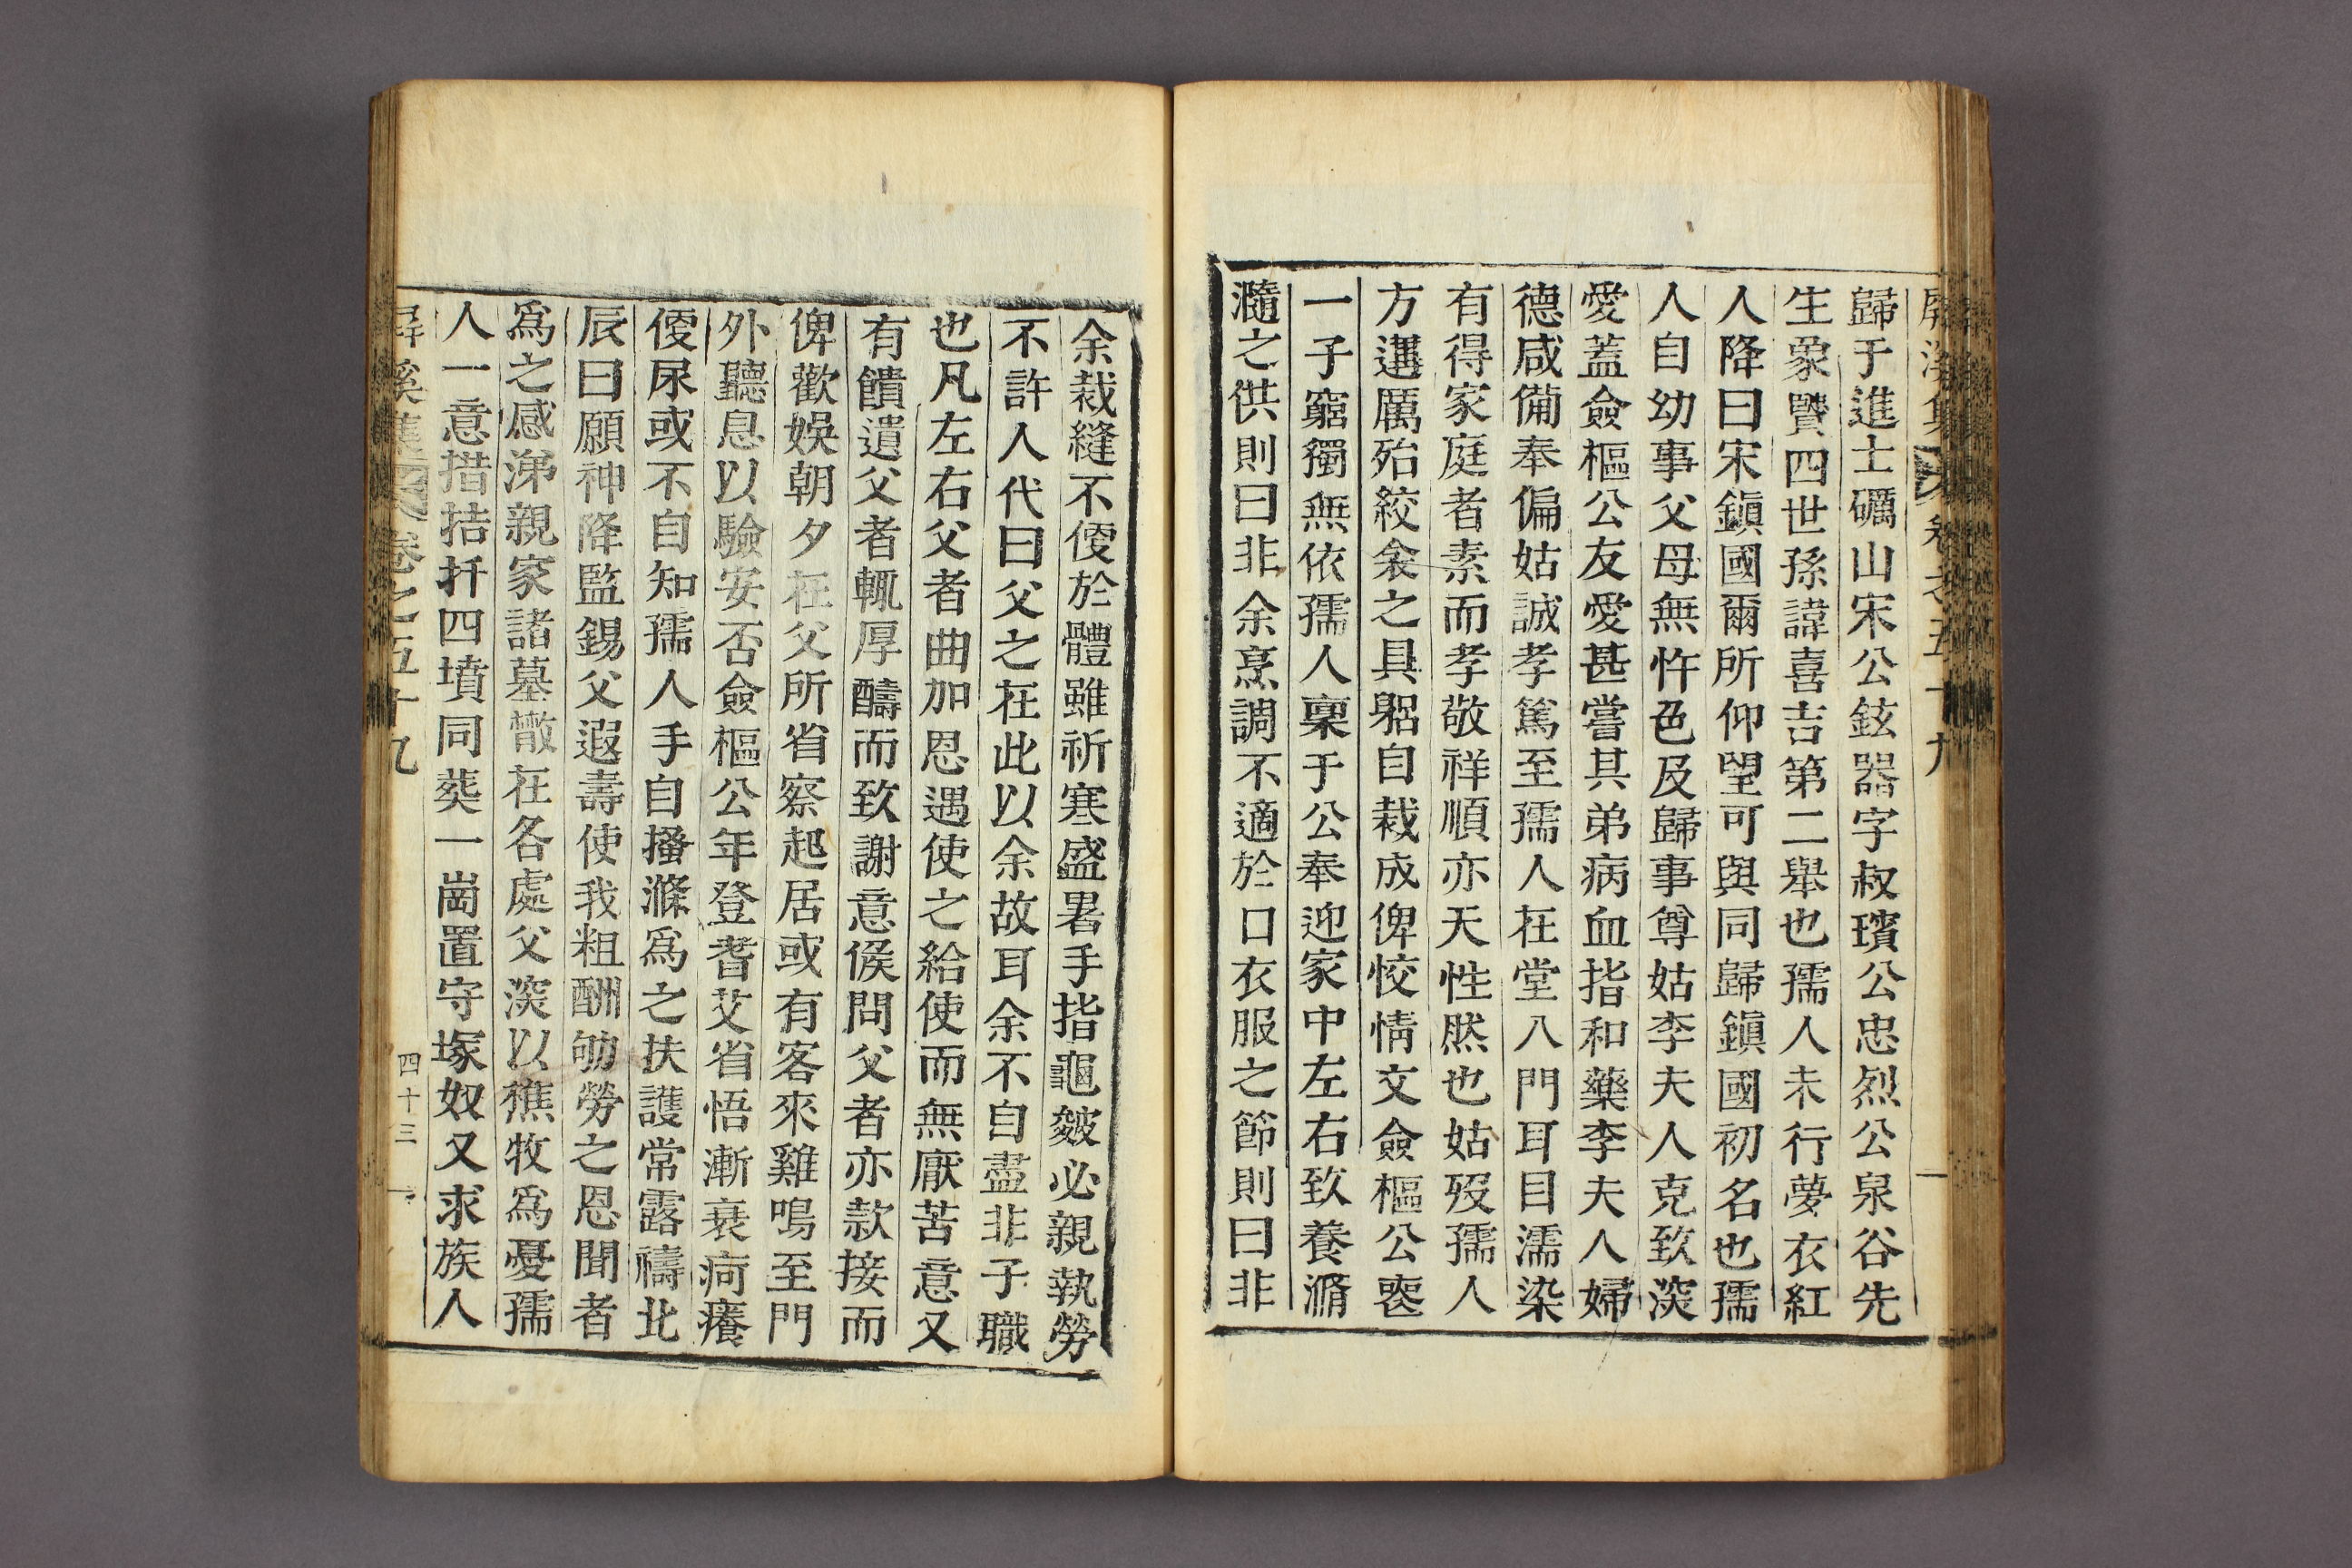 屛溪集 卷之五十九
歸于進士礪山宋公鉉器字叔璸公忠烈公泉谷先
生象贒四世孫諱喜吉第二舉也孺人未行夢衣紅
人降曰宋鎭國爾所仰朢可與同歸鎭國初名也孺
人自幼事父母無忤色及歸事尊姑李夫人克致㴱
愛蓋僉樞公友愛甚嘗其弟病血指和藥李夫人婦
德咸備奉偏姑誠孝篤至孺人在堂八門耳目濡染
有得家庭者素而孝敬祥順亦天性然也姑歿孺人
方遘厲殆絞衾之具躳自裁成俾恔情文僉樞公喪
一子窮獨無依孺人稟于公奉迎家中左右致養滫
瀡之供則曰非余烹調不適於口衣服之節則曰非
余裁縫不便於體雖祈寒盛暑手指龜皴必親執勞
不許人代曰父之在此以余故耳余不自盡非子職
也凡左右父者曲加恩遇使之給使而無厭苦意又
有饋遺父者輒厚醻而致謝意候問父者亦款接而
俾歡娛朝夕在父所省察起居或有客來雞鳴至門
外聽息以驗安否僉樞公年登耆艾省悟漸衰疴癢
便尿或不自知孺人手自搔滌爲之扶護常露禱北
辰曰願神降監錫父遐壽使我粗酬劬勞之恩聞者
爲之感涕親家諸墓散在各處父㴱以樵牧爲憂孺
人一意措拮扦四墳同葬一崗置守塚奴又求族人
屛溪集 卷之五十九 四十三